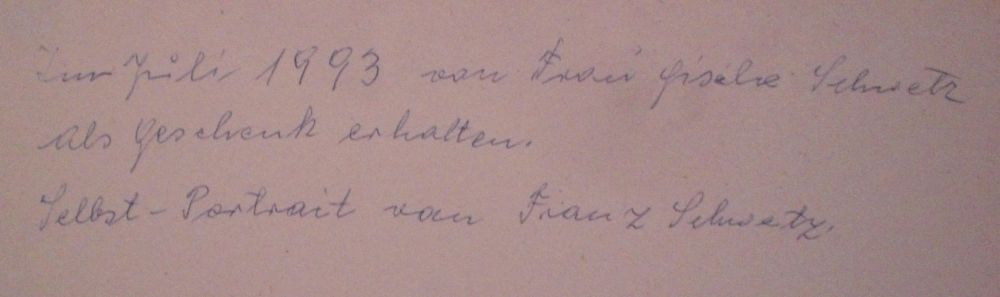 Im Juli 1993 von Frau Gisela Schwetz
als Geschenk erhalten.
Selbst-Portrait von Franz Schwetz.